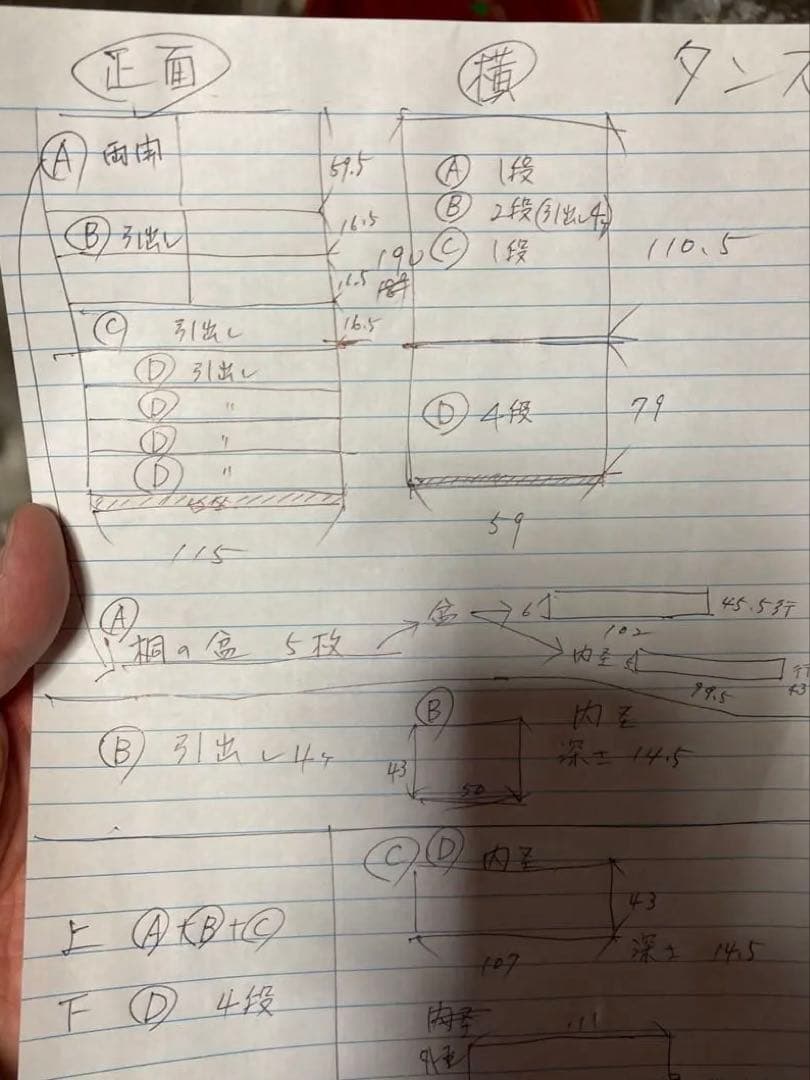 正面
横
タンス
Ⓐ 両開
59.5
Ⓐ 1段
Ⓑ 引出し
16.5
Ⓑ 2段(引出し4ケ)
190
Ⓒ 1段
110.5
16.5
Ⓒ 引出し
16.5
Ⓓ 引出し
Ⓓ 〃
Ⓓ 4段
79
Ⓓ 〃
Ⓓ 〃
115
59
Ⓐ
桐の盆 5枚
盆
6
45.5
102
内
99.5
43
Ⓑ 引出し4ケ
Ⓑ
43
50
内
深さ 14.5
Ⓒ Ⓓ 内
43
107
深さ 14.5
上 Ⓐ+Ⓑ+Ⓒ
下 Ⓓ 4段
111